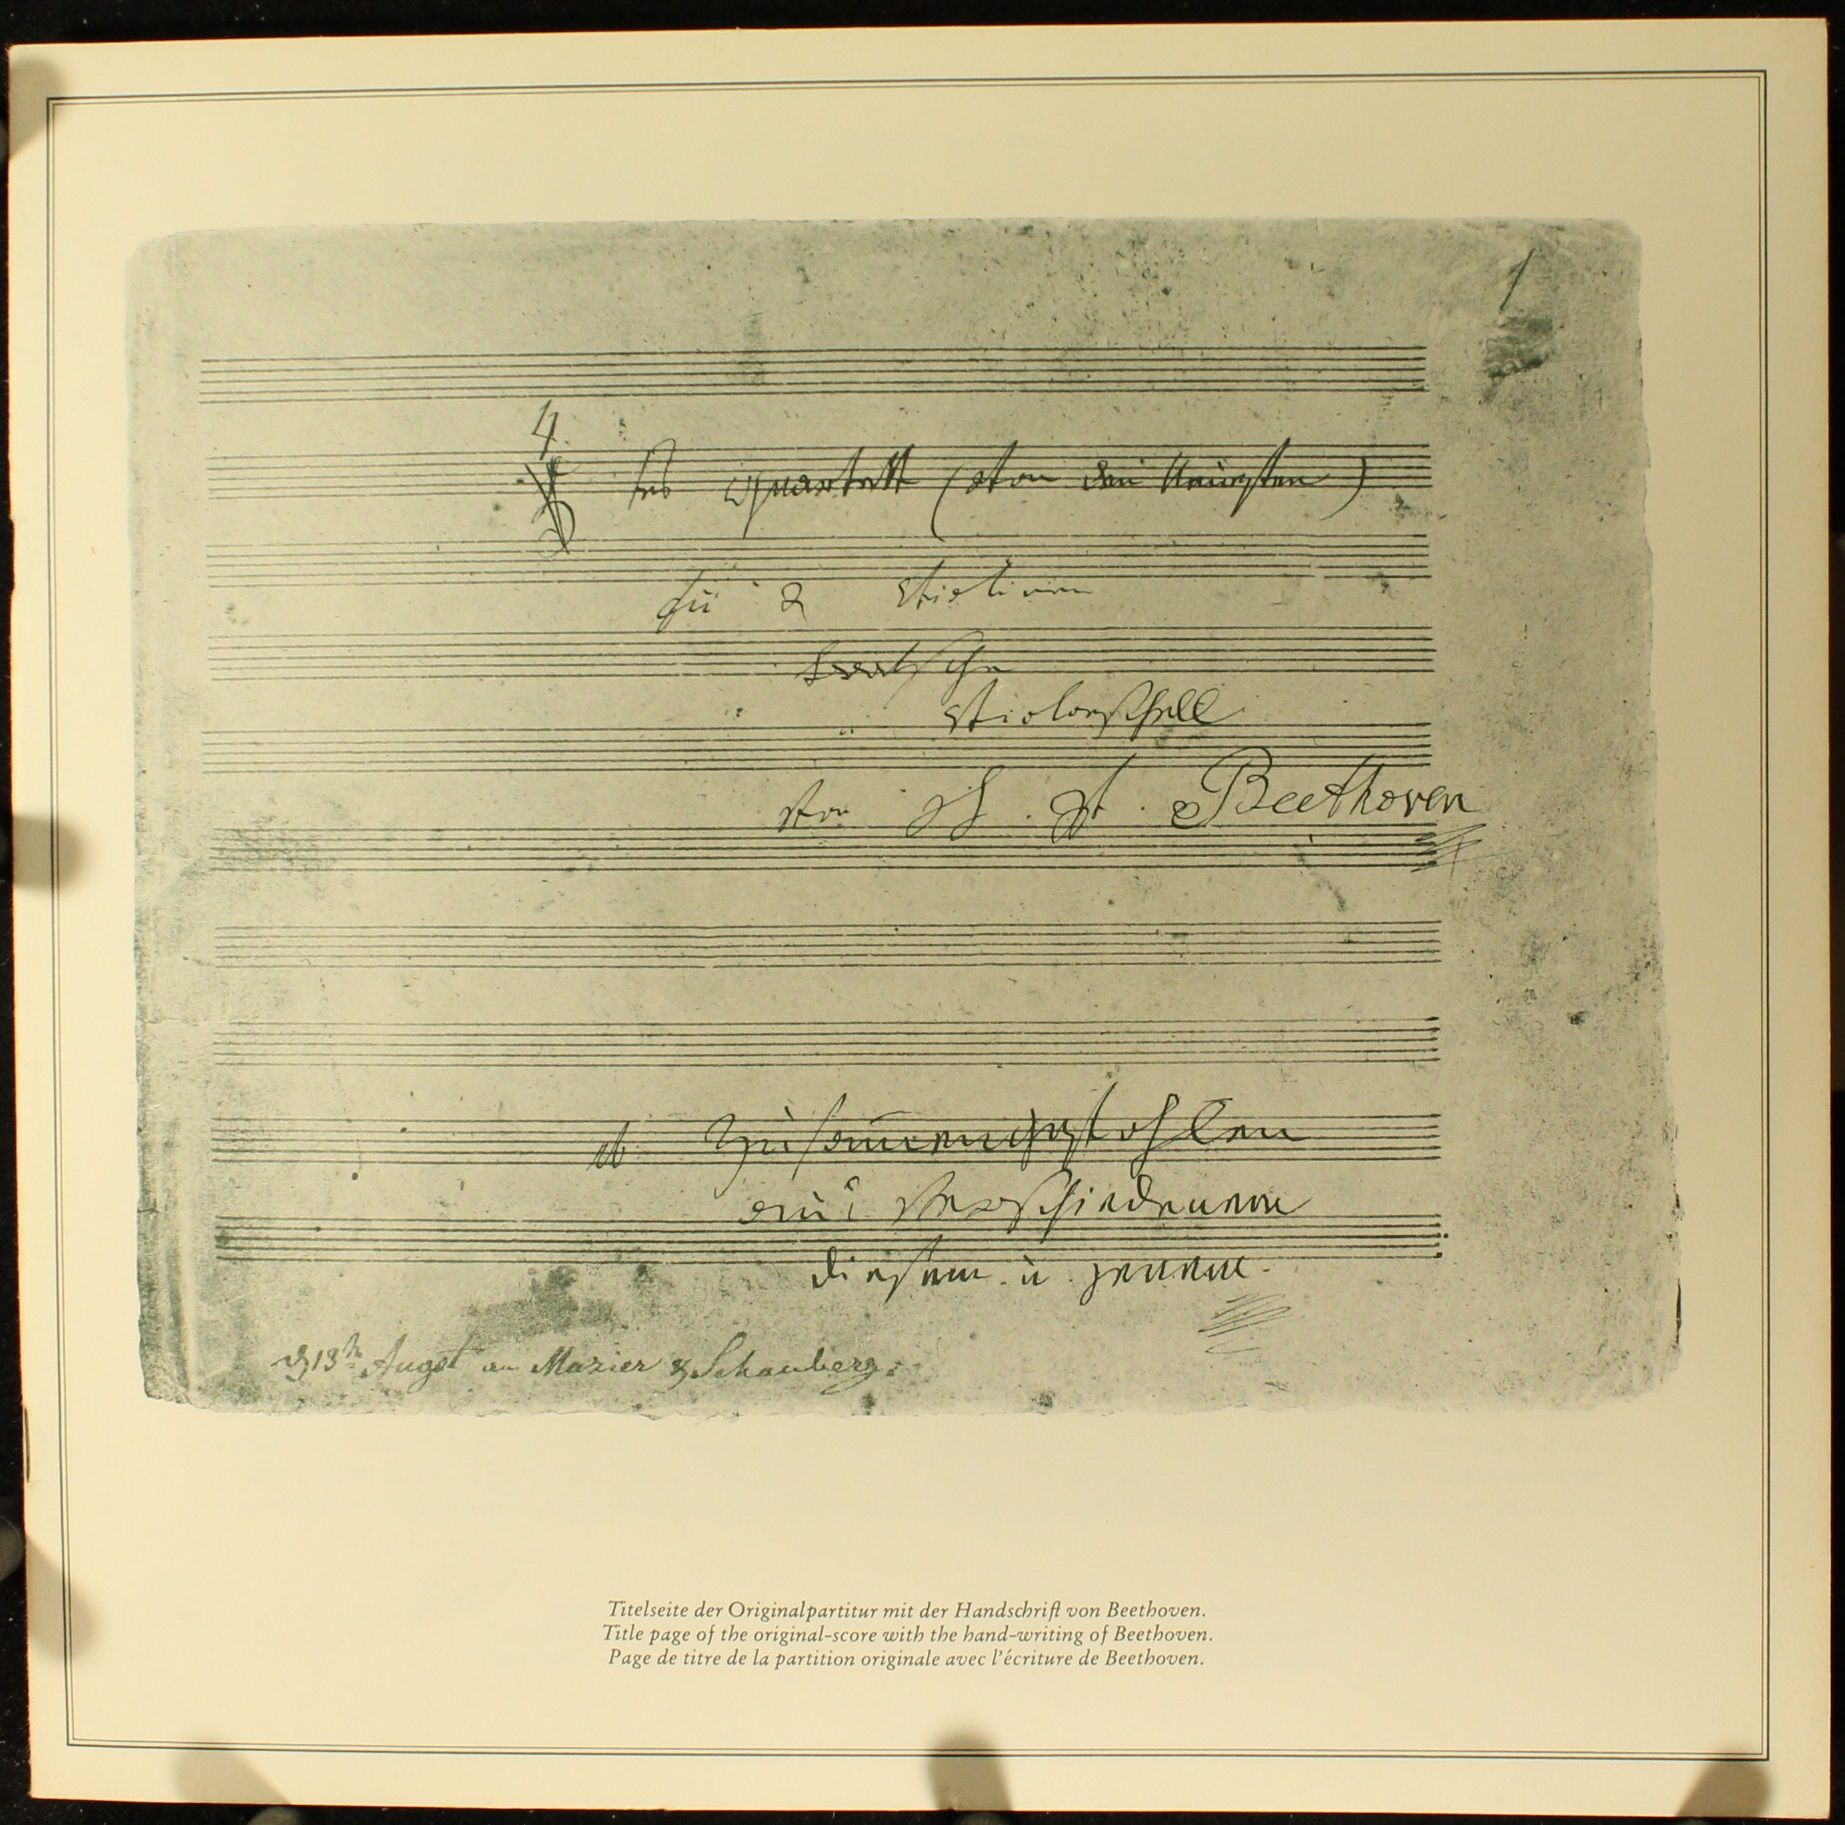 1
4
tes Quartett (von den Neuesten)
für 2 Violinen
Bratsche
Violonschell
von L. v. Beethoven
zusammengestohlen
aus verschiedenem
diesem u. jenem.
13 Augst an Schauberg.
Titelseite der Originalpartitur mit der Handschrift von Beethoven.
Title page of the original-score with the hand-writing of Beethoven.
Page de titre de la partition originale avec l'écriture de Beethoven.